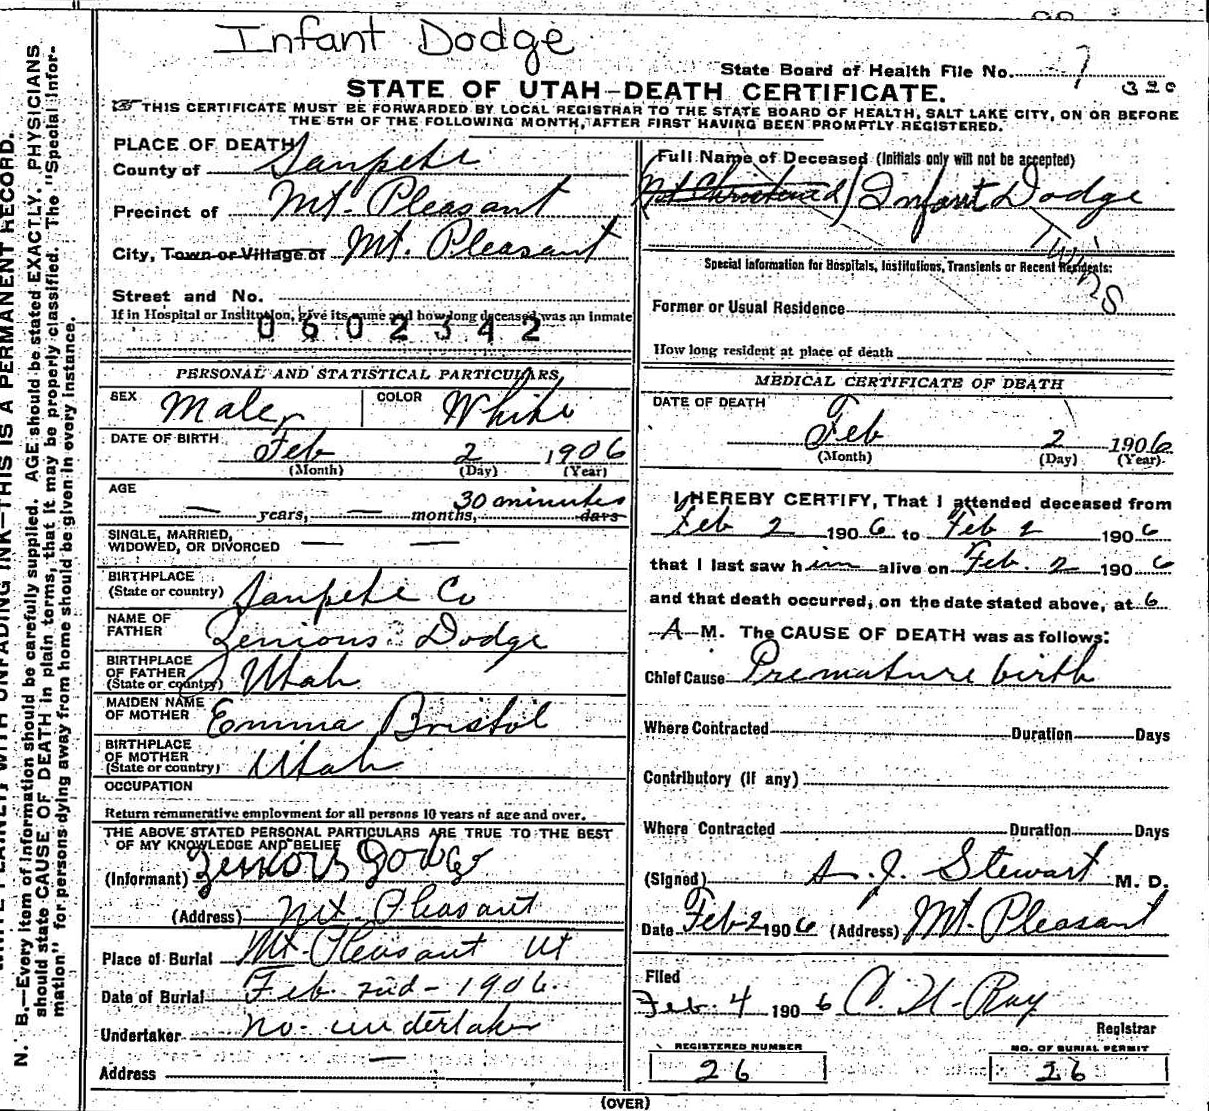 Infant Dodge
State Board of Health File No. 7
320
STATE OF UTAH-DEATH CERTIFICATE.
THIS CERTIFICATE MUST BE FORWARDED BY LOCAL REGISTRAR TO THE STATE BOARD OF HEALTH, SALT LAKE CITY, ON OR BEFORE
THE 5TH OF THE FOLLOWING MONTH, AFTER FIRST HAVING BEEN PROMPTLY REGISTERED.
PLACE OF DEATH
County of Sanpete
Precinct of Mt. Pleasant
City, Town or Village of Mt. Pleasant
Street and No.
If in Hospital or Institution, give its name and how long deceased was an inmate
0602342
PERSONAL AND STATISTICAL PARTICULARS
SEX Male COLOR White
DATE OF BIRTH Feb 2 1906
(Month) (Day) (Year)
AGE 30 minutes
years, months, days
SINGLE, MARRIED,
WIDOWED, OR DIVORCED
BIRTHPLACE
(State or country) Sanpete Co
NAME OF
FATHER Zenious Dodge
BIRTHPLACE
OF FATHER
(State or country) Utah
MAIDEN NAME
OF MOTHER Emma Bristol
BIRTHPLACE
OF MOTHER
(State or country) Utah
OCCUPATION
Return remunerative employment for all persons 10 years of age and over.
THE ABOVE STATED PERSONAL PARTICULARS ARE TRUE TO THE BEST
OF MY KNOWLEDGE AND BELIEF
(Informant) Zenious Dodge
(Address) Mt. Pleasant
Place of Burial Mt. Pleasant Ut
Date of Burial Feb. 2nd - 1906.
Undertaker No undertaker
Address
Full Name of Deceased (Initials only will not be accepted)
Not Christened / Infant Dodge
Twins
Special information for Hospitals, Institutions, Transients or Recent Residents:
Former or Usual Residence
How long resident at place of death
MEDICAL CERTIFICATE OF DEATH
DATE OF DEATH
Feb 2 1906
(Month) (Day) (Year)
I HEREBY CERTIFY, That I attended deceased from
Feb 2 1906 to Feb 2 1906
that I last saw him alive on Feb. 2 1906
and that death occurred, on the date stated above, at 6
A M. The CAUSE OF DEATH was as follows:
Chief Cause Premature birth
Where Contracted Duration Days
Contributory (if any)
Where Contracted Duration Days
(Signed) A. J. Stewart M. D.
Date Feb 2 1906 (Address) Mt. Pleasant
Filed
Feb. 4 1906 C. W. Ray
Registrar
REGISTERED NUMBER NO. OF BURIAL PERMIT
26 26
(OVER)
N. B.—Every item of information should be carefully supplied. AGE should be stated EXACTLY. PHYSICIANS
should state CAUSE OF DEATH in plain terms, that it may be properly classified. The "Special Infor-
mation" for persons dying away from home should be given in every instance.
UNFADING INK—THIS IS A PERMANENT RECORD.